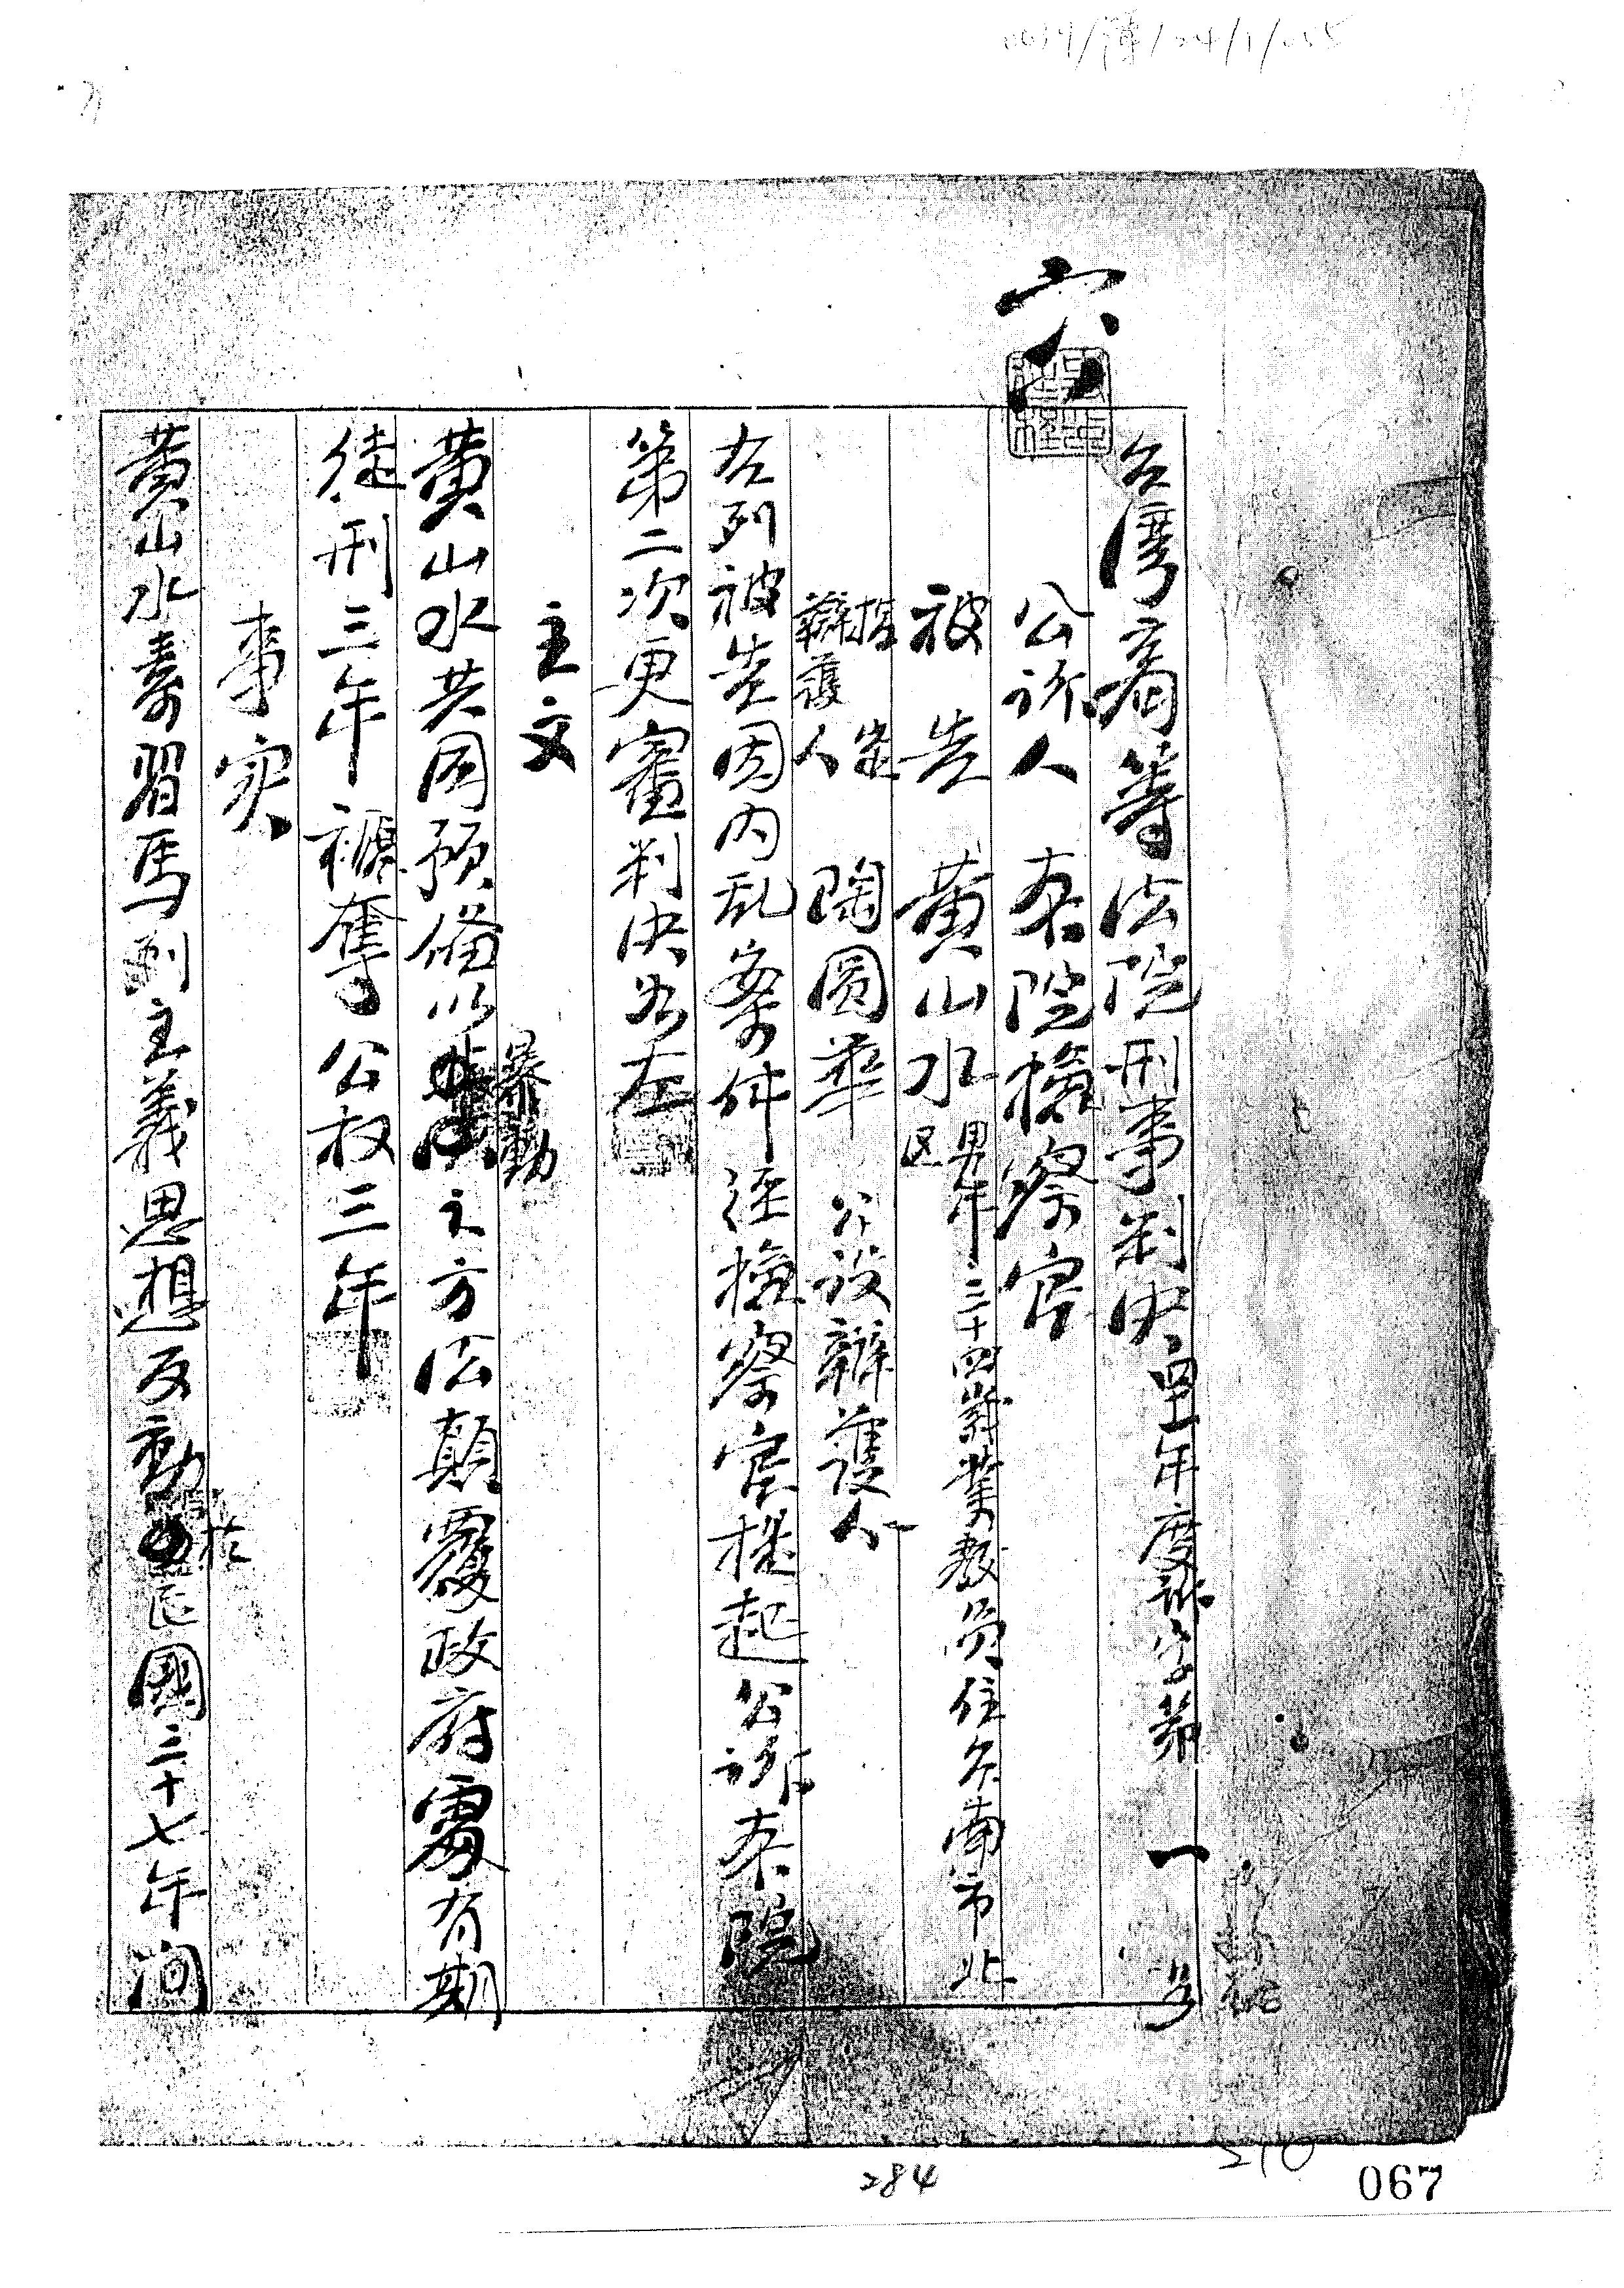 六
台湾高等法院刑事判决 四十年度訴字第一号
公訴人 本院檢察官
被告 黄山水 男年三十四歲業教員住台南市北
区
指定
辯護人 陶圆華 公設辯護人
右列被告因内乱案件 経檢察官提起公訴本院
第二次更審判决如左
主文
黄山水共同預備以暴動之方法顛覆政府處有期
徒刑三年褫奪公权三年
事实
黄山水素習馬列主義思想反動於民國三十七年間
284
210
067